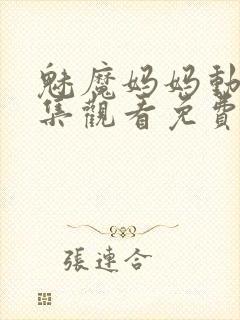 魅魔妈妈動
集觀看免費
張連合